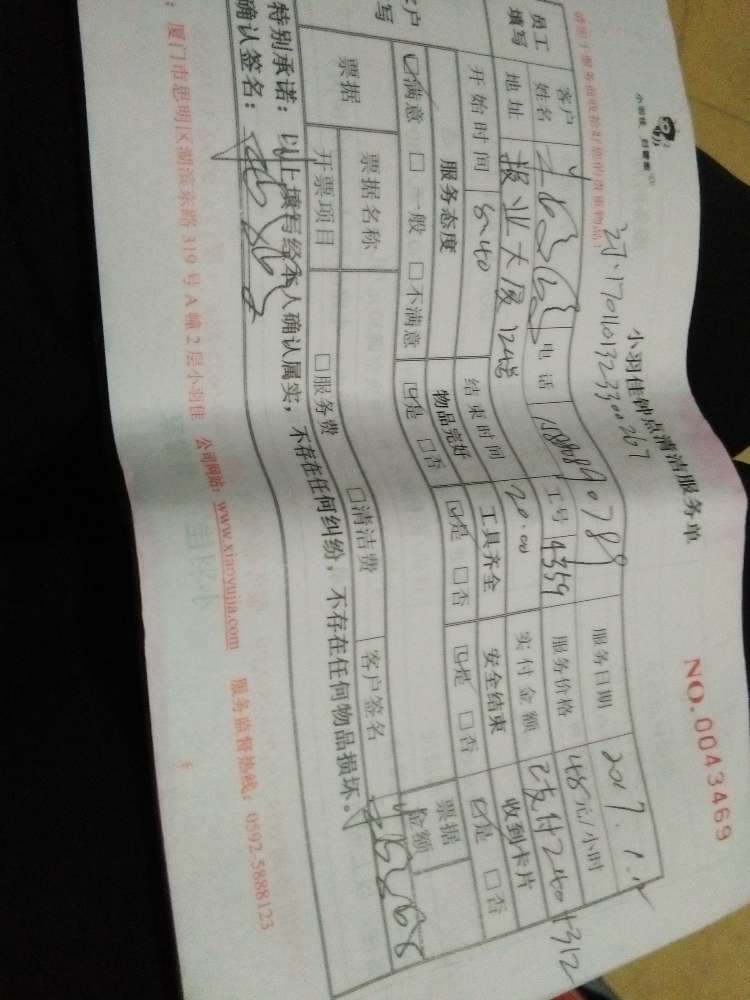 小羽佳钟点清洁服务单
NO.0043469
小羽佳 白鹭洲
请图丨服务前收拾好您的贵重物品！
员工填写 客户姓名 电话 服务日期 2017.1.
地址 报业大厦 工号 4359 服务价格 48元/小时
开始时间 结束时间 20:00 实付金额 已支付240 4312
服务态度 物品完好 工具齐全 安全结束 收到卡片
☑满意 □一般 □不满意 ☑是 □否 ☑是 □否 ☑是 □否 ☑是 □否
票据 票据名称 □服务费 □清洁费 票据金额
开票项目 客户签名
特别承诺：以上填写经本人确认属实，不存在任何纠纷，不存在任何物品损坏。
确认签名：
厦门市思明区湖滨东路319号A幢2层小羽佳 公司网站：www.xiaoyujia.com 服务监督热线：0592-5888123